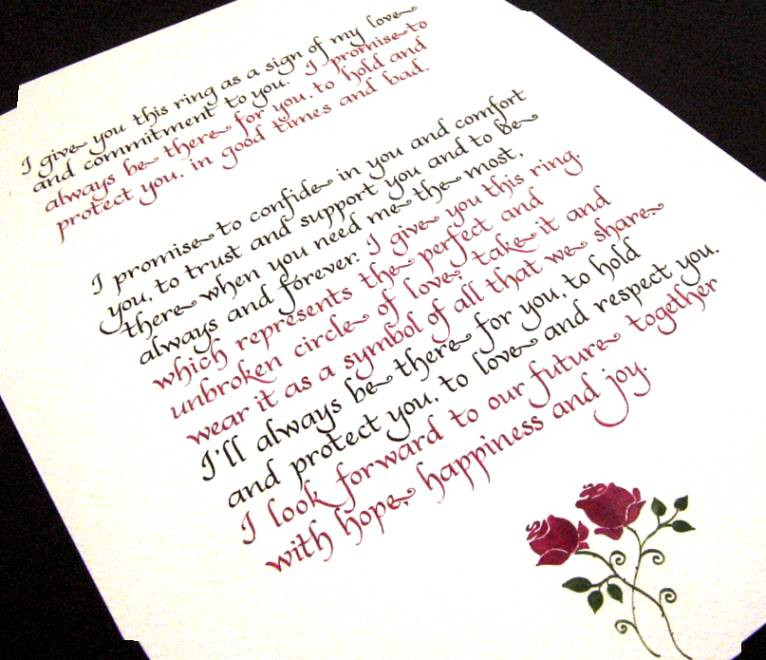 I give you this ring as a sign of my love
and commitment to you. I promise to
always be there for you, to hold and
protect you, in good times and bad.
I promise to confide in you and comfort
you, to trust and support you and to be
there when you need me the most,
always and forever. I give you this ring,
which represents the perfect and
unbroken circle of love, take it and
wear it as a symbol of all that we share.
I'll always be there for you, to hold
and protect you, to love and respect you.
I look forward to our future together
with hope, happiness and joy.